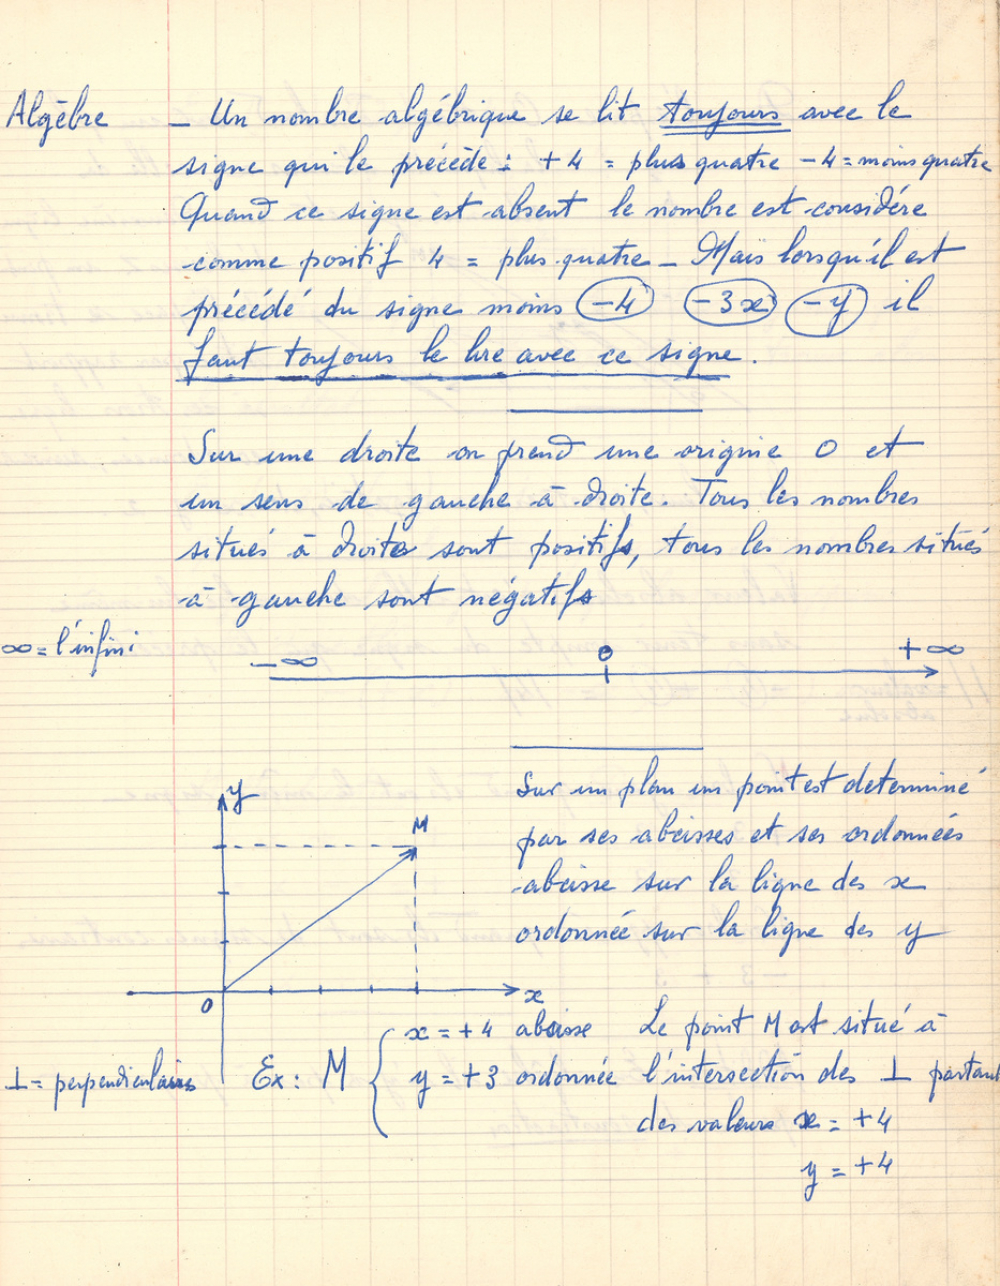 Algèbre – Un nombre algébrique se lit toujours avec le
signe qui le précède : +4 = plus quatre -4 = moins quatre
Quand ce signe est absent le nombre est considéré
comme positif 4 = plus quatre – Mais lorsqu'il est
précédé du signe moins -4 -3x -y il
faut toujours le lire avec ce signe.
Sur une droite on prend une origine O et
un sens de gauche à droite. Tous les nombres
situés à droite sont positifs, tous les nombres situés
à gauche sont négatifs
∞ = l'infini
-∞ o +∞
y
M
Sur un plan un point est determiné
par ses abcisses et ses ordonnées
abcisse sur la ligne des x
ordonnée sur la ligne des y
O x
x = +4 abcisse Le point M est situé à
⊥ = perpendiculaires Ex : M { y = +3 ordonnée l'intersection des ⊥ partant
des valeurs x = +4
y = +4